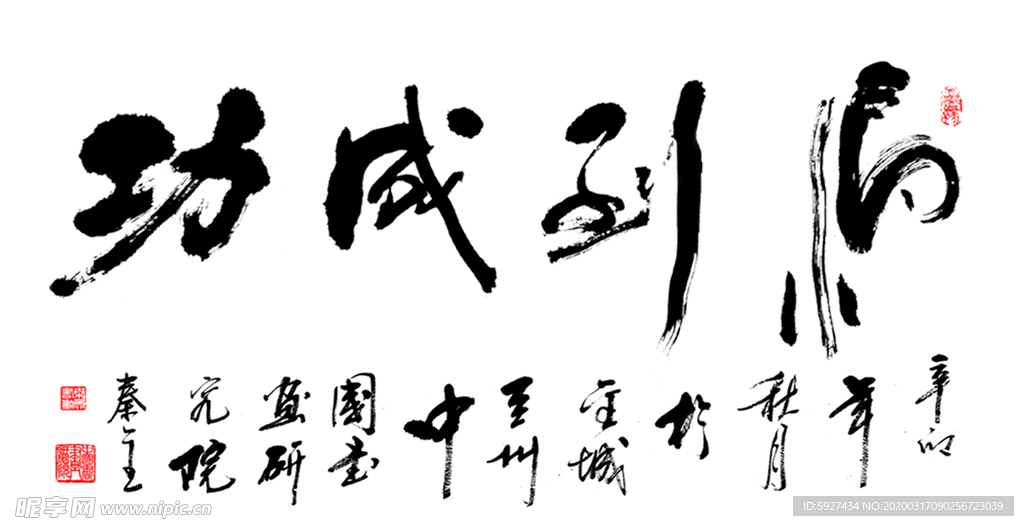 馬到成功
辛卯
年
秋月
於
金城
兰州
中
國書
畫研
究院
秦
昵享网 www.nipic.cn
ID:5927434 NO:20200317090256723039